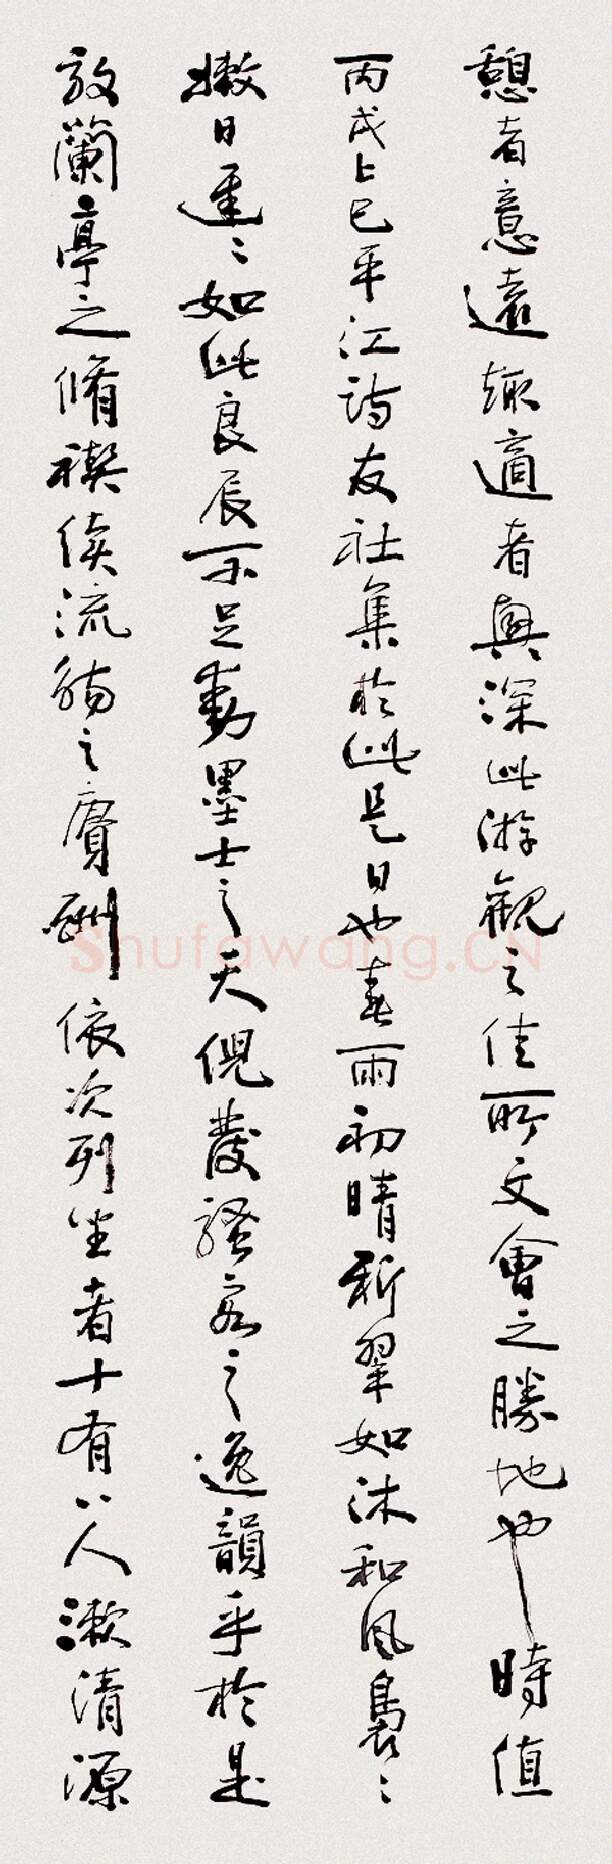 憩者意遠趣適者興深此游觀之佳所文會之勝地也時值
丙戌上巳平江詩友社集於此是日也春雨初晴新翠如沐和風裊〻
嫩日遲〻如此良辰不足動墨士之天倪發騷客之逸韻乎於是
效蘭亭之脩禊續流觴之賡酬依次列坐者十有八人漱清源
Shufawang.CN